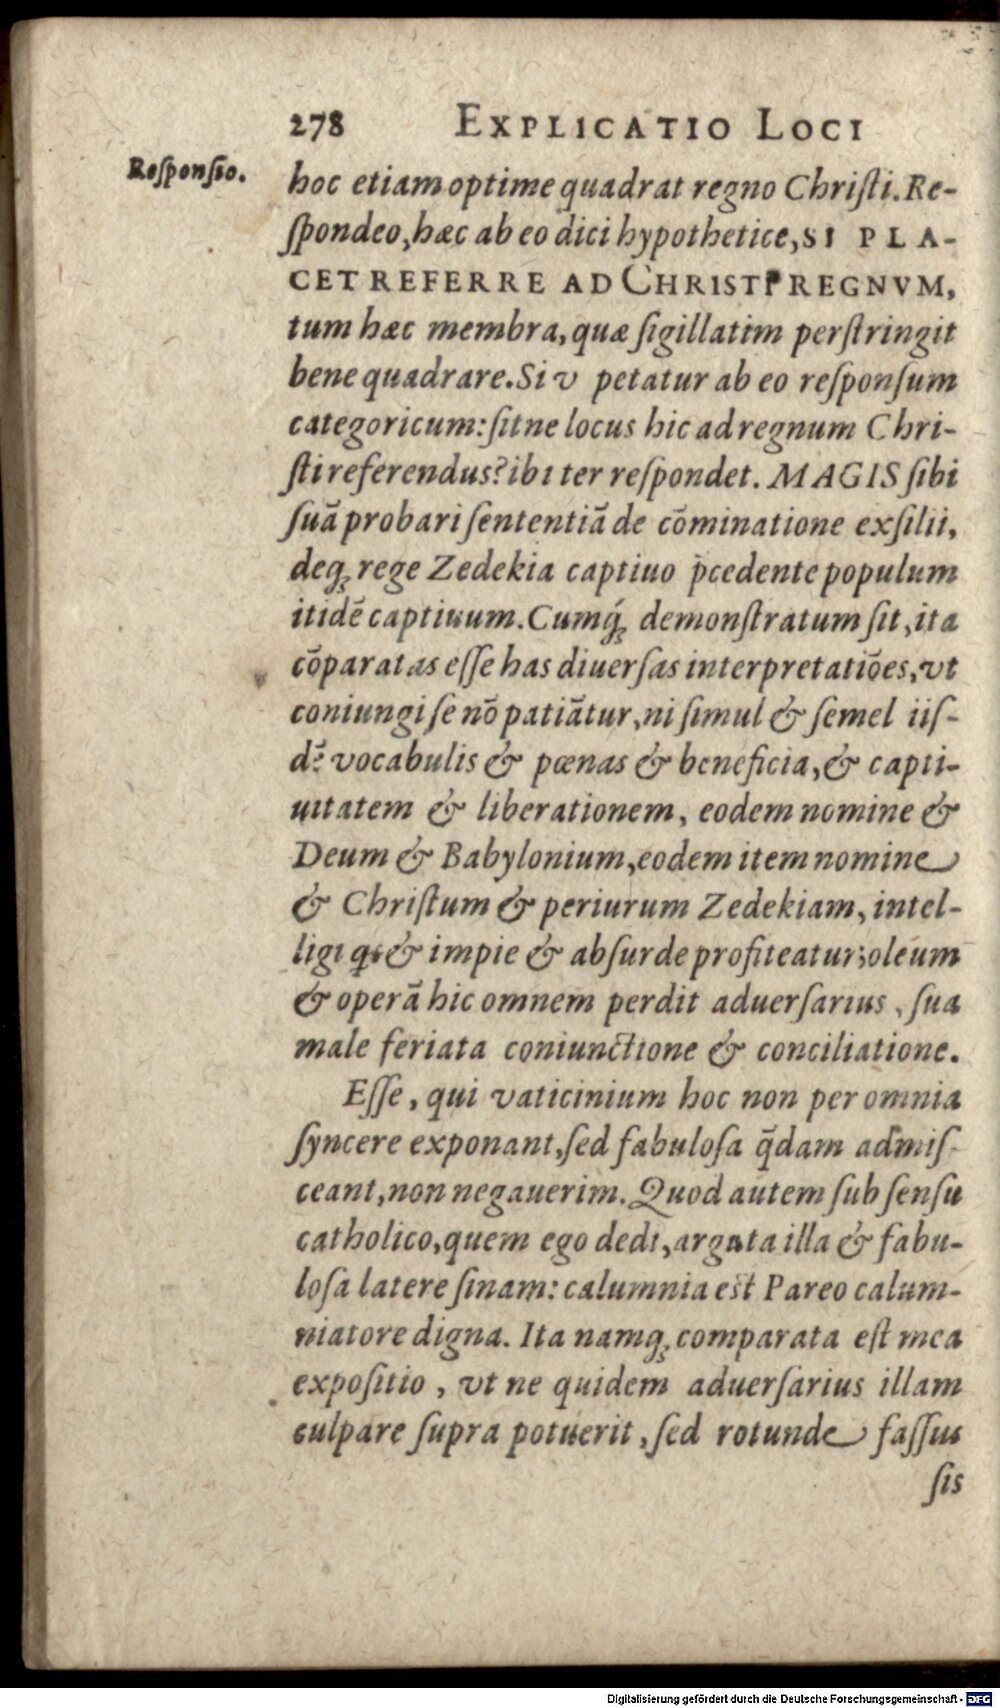 278 EXPLICATIO LOCI
Reſponſio.
hoc etiam optime quadrat regno Chriſti. Re-
ſpondeo, hæc ab eo dici hypothetice, SI PLA-
CET REFERRE AD CHRISTI REGNVM,
tum hæc membra, quæ ſigillatim perſtringit
bene quadrare. Si v petatur ab eo reſponſum
categoricum: ſitne locus hic ad regnum Chri-
ſti referendus? ibi ter reſpondet. MAGIS ſibi
ſuã probari ſententiã de cõminatione exſilii,
deq́ꝫ rege Zedekia captiuo p̃cedente populum
itidẽ captiuum. Cumq́ꝫ demonſtratum ſit, ita
cõparatas eſſe has diuerſas interpretatiões, vt
coniungi ſe nõ patiãtur, ni ſimul & ſemel iiſ-
dẽ vocabulis & pœnas & beneficia, & capti-
uitatem & liberationem, eodem nomine &
Deum & Babylonium, eodem item nomine
& Chriſtum & periurum Zedekiam, intel-
ligi & impie & abſurde profiteatur; oleum
& operã hic omnem perdit aduerſarius, ſua
male feriata coniunctione & conciliatione.
Eſſe, qui vaticinium hoc non per omnia
ſyncere exponant, ſed fabuloſa q̃dam admiſ-
ceant, non negauerim. Quod autem ſub ſenſu
catholico, quem ego dedi, arguta illa & fabu-
loſa latere ſinam: calumnia eſt Pareo calum-
niatore digna. Ita namqꝫ comparata eſt mea
expoſitio, vt ne quidem aduerſarius illam
culpare ſupra potuerit, ſed rotunde faſſus
ſis
Digitalisierung gefördert durch die Deutsche Forschungsgemeinschaft - DFG